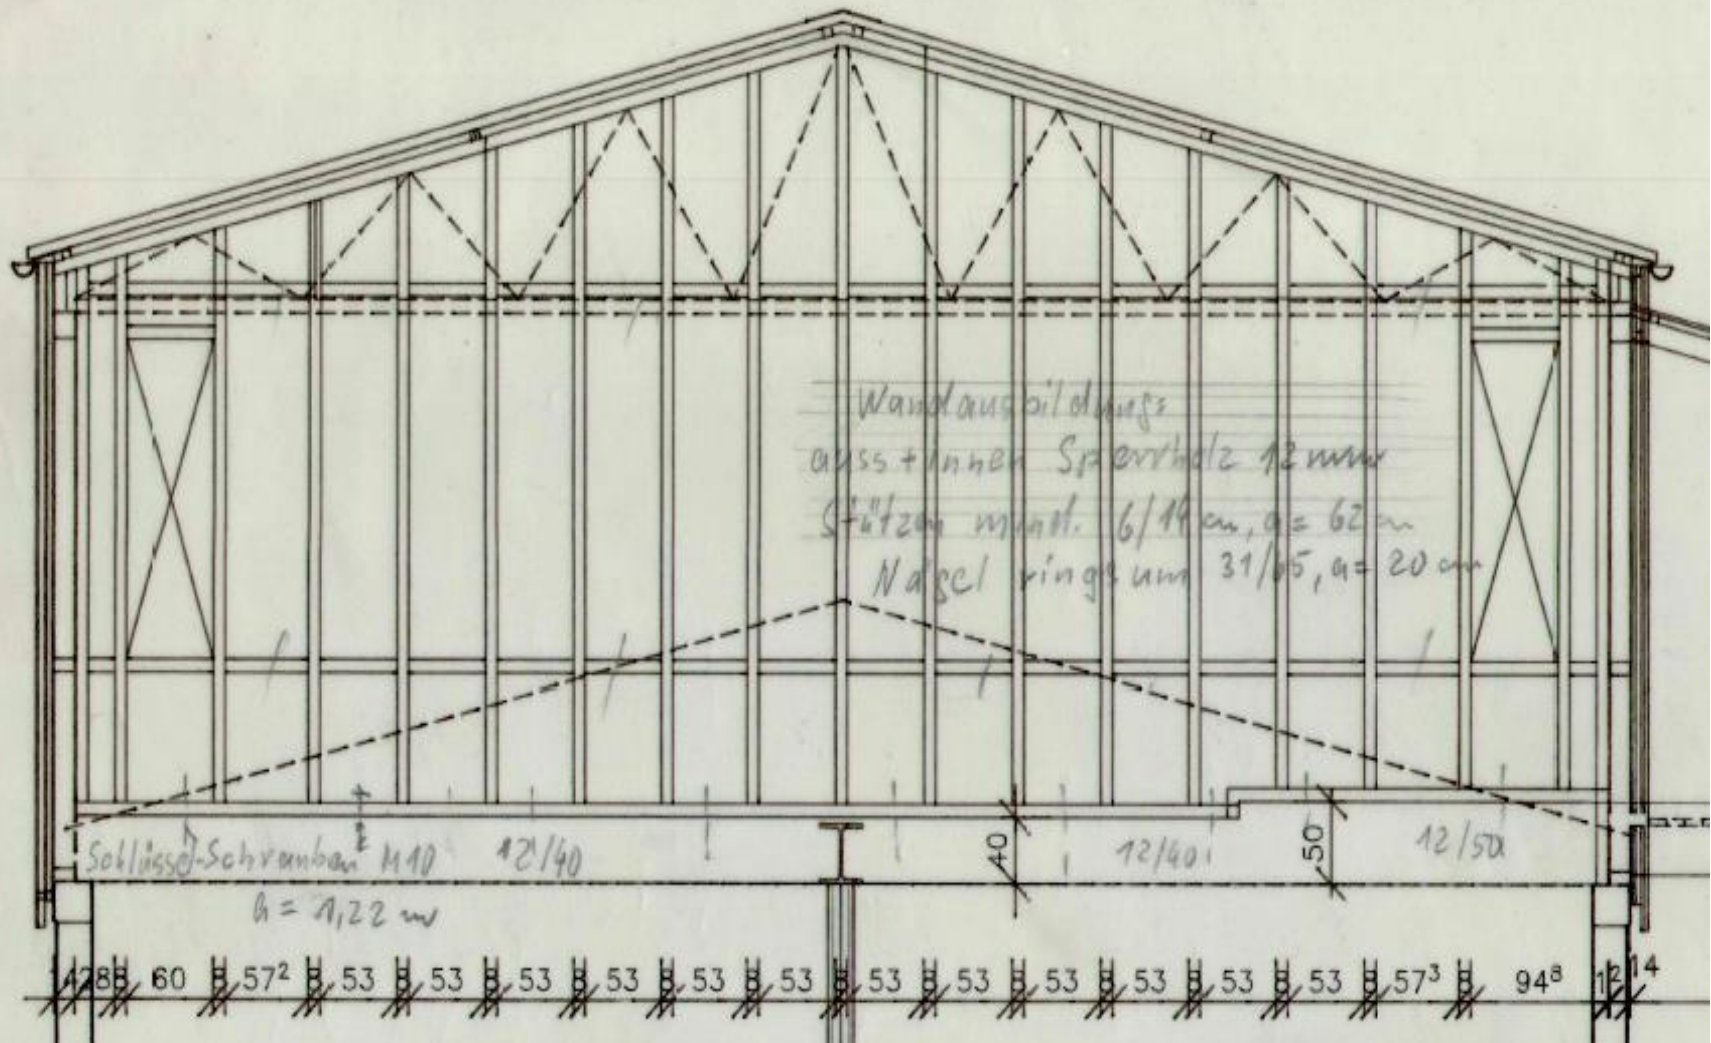 Wandausbildung:
auss + innen Sperrholz 12 mm
Stützen mind. 6/14 cm, a = 62 cm
Nägel ringsum 31/65, a = 20 cm
Schlüssel-Schrauben M10 12/40
a = 1,22 m
40
12/40
50
12/50
8 60 8 57² 8 53 8 53 8 53 8 53 8 53 8 53 8 53 8 53 8 53 8 53 8 53 8 53 8 57³ 8 94⁸ 1² 14